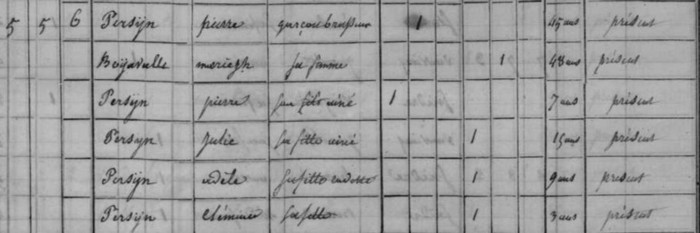 5 5 6 Persijn pierre garçon brasseur 1 45 ans présent
sa femme 1 48 ans présent
1 Persijn pierre son fils ainé 1 7 ans présent
Persijn Julie sa fille ainé 1 15 ans présent
Persijn adèle sa fille cadette 1 9 ans présent
Persijn sa fille 1 3 ans présent